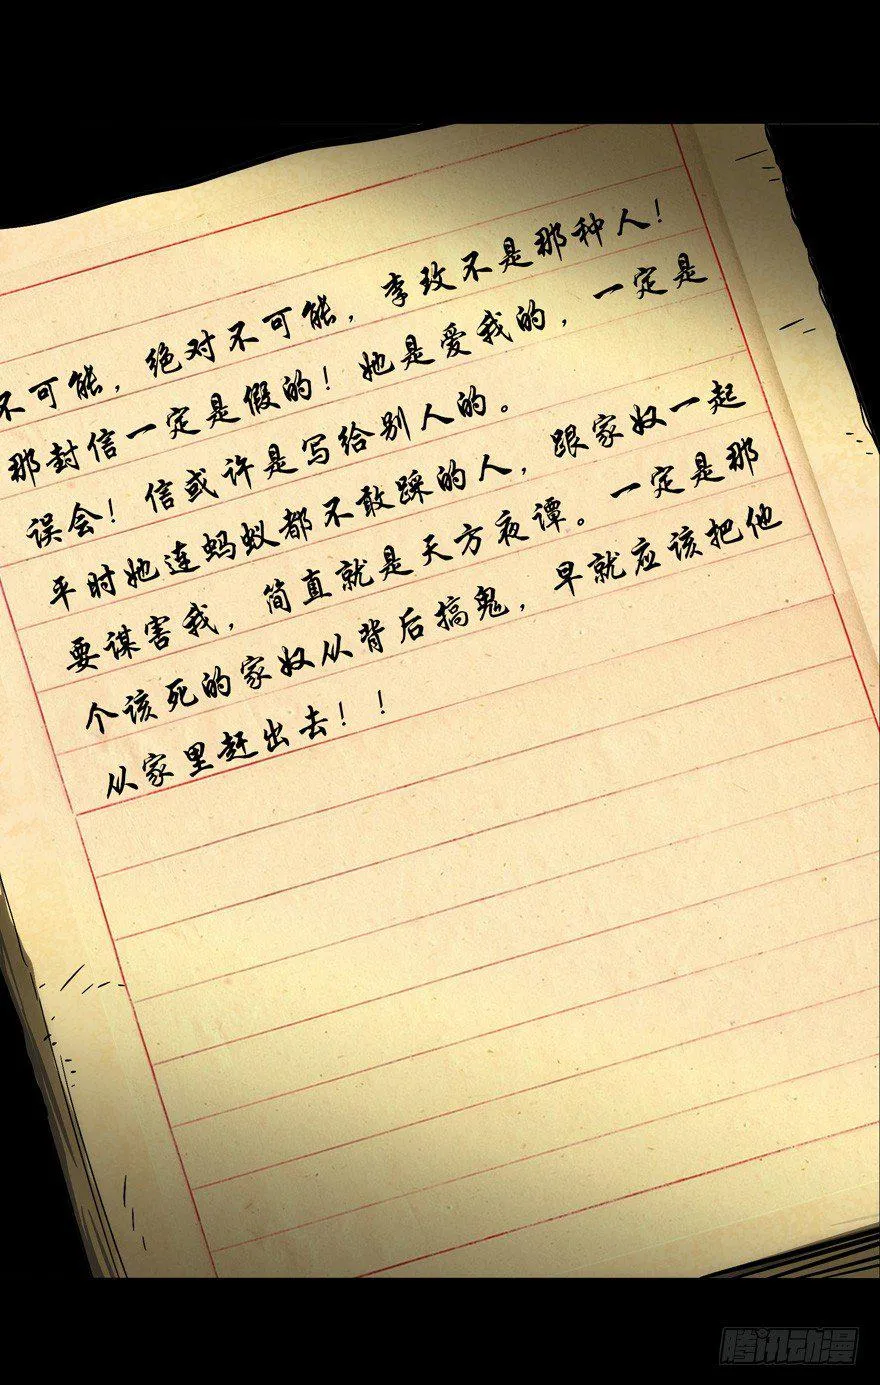 不可能，绝对不可能，李玫不是那种人！
那封信一定是假的！她是爱我的，一定是
误会！信或许是写给别人的。
平时她连蚂蚁都不敢踩的人，跟家奴一起
要谋害我，简直就是天方夜谭。一定是那
个该死的家奴从背后搞鬼，早就应该把他
从家里赶出去！！
腾讯动漫